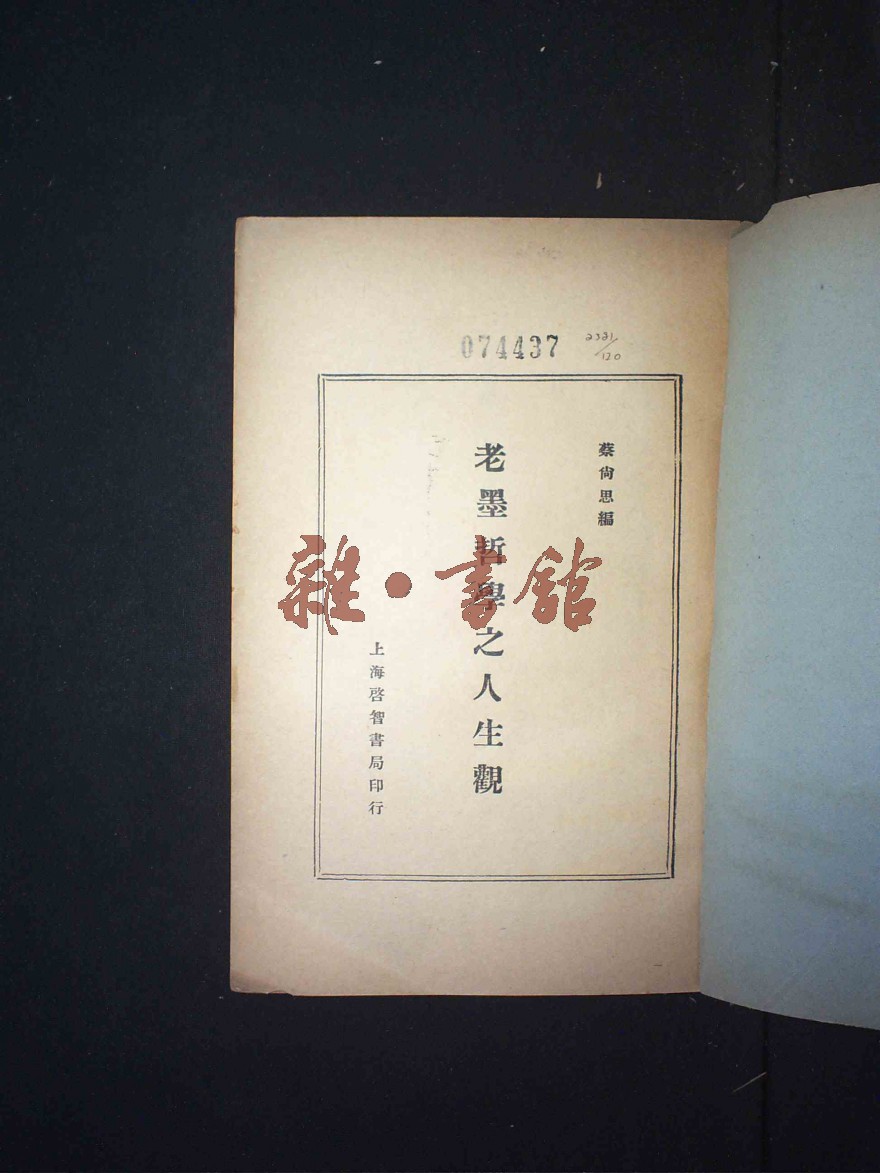 074437
2321/120
蔡尙思編
老墨哲學之人生觀
上海啓智書局印行
雜·書館